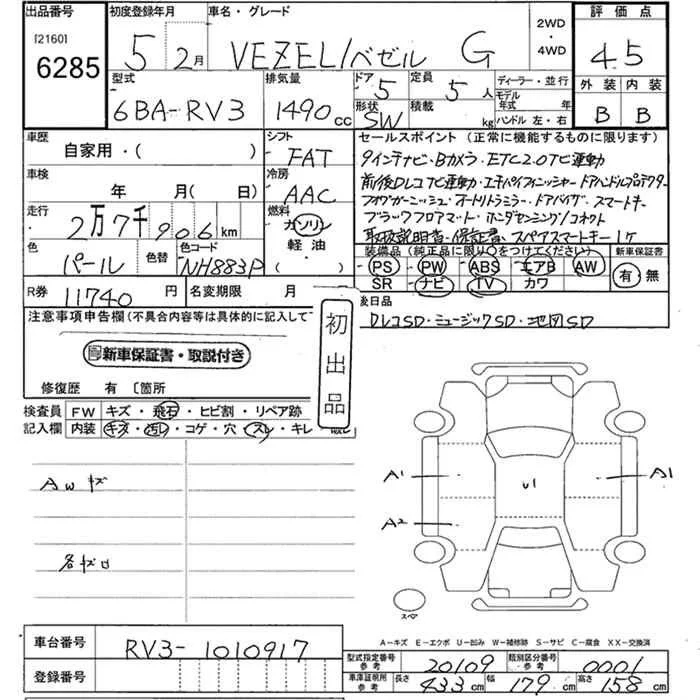 出品番号
[2160]
6285
初度登録年月
5 2月
車名・グレード
VEZEL/ベゼル G
2WD
・
4WD
評価点
4.5
外装 内装
B B
型式
6BA-RV3
排気量
1490cc
ドア
5
形状
SW
定員
5人
積載
kg
ディーラー・並行
モデル
年式 年
ハンドル 左・右
車歴
自家用・( )
シフト
FAT
車検
年 月( 日)
冷房
AAC
走行
2万7千906km
燃料
ガソリン
軽油
( )
色
パール
色替
色コード
NH883P
R券
11740円
名変期限 月
セールスポイント (正常に機能するものに限ります)
9インチナビ・Bカメラ・ETC2.0 TV運動
前後DレコTV運動・エキパイフィニッシャー ドアハンドルプロテクター
フォグガーニッシュ・オートリトラミラー・ドアバイザ スマートキー
ブラックフロアマット・ホンダセンシング/コネクト
取扱説明書・保証書 スペアスマートキー1ヶ
装備品 (純正品に限り○をつけてください)
PS PW ABS エアB AW
SR ナビ TV カワ
新車保証書
有 無
後日品
DレコSD・ミュージックSD・地図SD
注意事項申告欄(不具合内容等は具体的に記入して
新車保証書・取説付き
初出品
修復歴 有 〔箇所
検査員
記入欄
FW キズ・飛石・ヒビ割・リペア跡
内装 キズ・汚レ・コゲ・穴・スレ・キレ・
AWキズ
各キズ
A1
U1
A1
A2
スペア
車台番号
RV3-1010917
登録番号
A-キズ E-エクボ U-凹み W-補修跡 S-サビ C-腐食 XX-交換済
型式指定番号
参考
20109
類別区分番号
参考
0001
車庫証明用
参考
長さ 433cm 幅 179cm 高さ 158cm